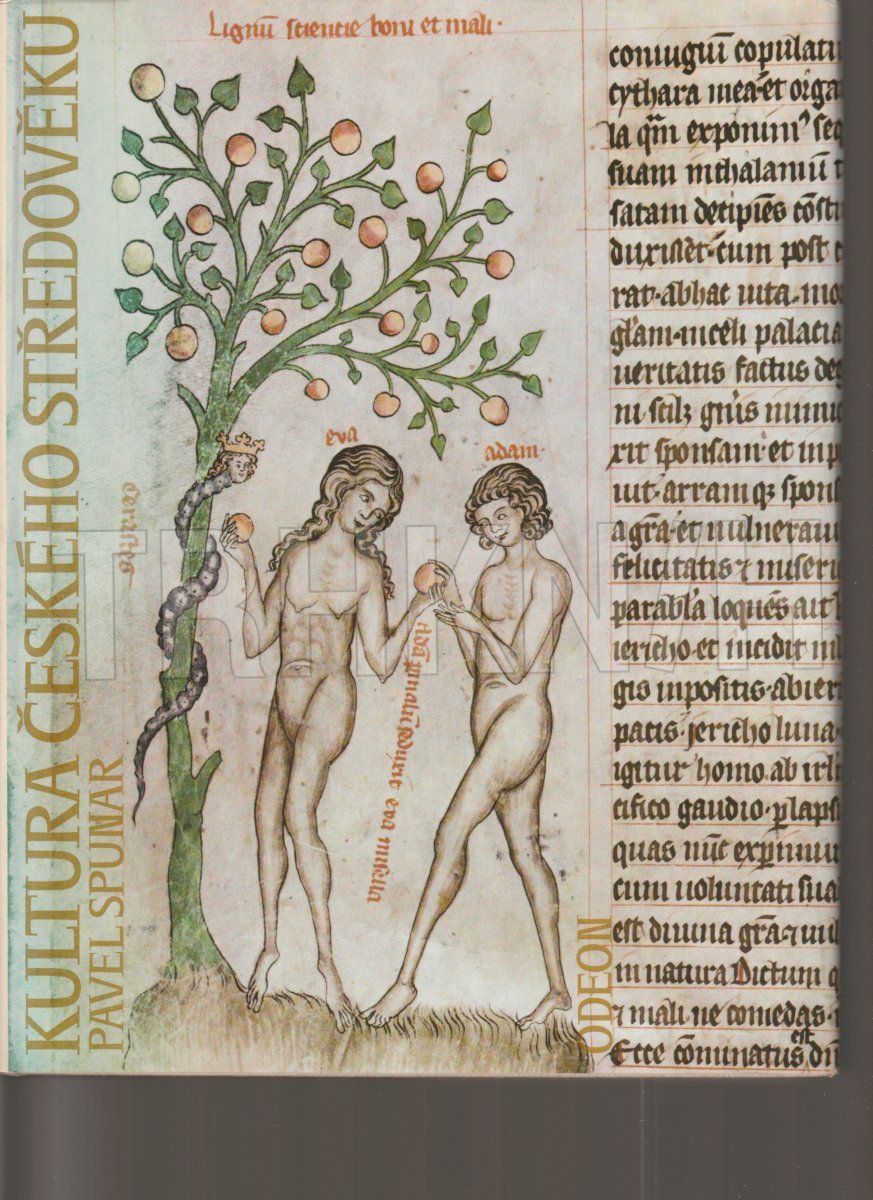 KULTURA ČESKÉHO STŘEDOVĚKU
PAVEL SPUNAR
ODEON
Lignū sciencie boni et mali·
eva
adam·
eva misella
coniugiū copulatu
cythara mea·et orga
la qm̄ exponim᾽ seq
suam in thalamiū t
satam decipiēs cōstu
duxisset·cum post
rat·ab hac uita·mo
gl̄am·in celi palacia
ueritatis factus de
xit sponsam·et in p
uit·arram qꝫ spons
a gr̄a·et uulnerauit
felicitatis ⁊ miseri
parabl̄a loquēs ait
iericho·et incidit in l
gis inpositis·abier
pacis·jericho luna·
igitur homo·ab irl̄
cifico gaudio·
quas nūc
cum uoluntati sua
est diuina gr̄a·⁊
in natura Dictum q
⁊ mali·ne comedas·
Ecce cōminatus est dn̄
TREKNIH